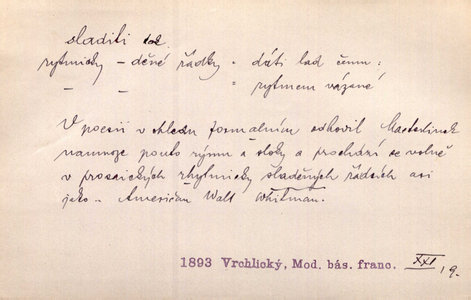 sladiti
rytmicky – děné řádky = dáti lad čemu :
– – = rytmem vázané
V poesii v ohledu formalním odhodil Maeterlinck
namnoze pouto rýmu a sloky a prochází se volně
v prosaických rhytmicky sladěných řádcích asi
jako .. Američan Walt Whitman.
1893 Vrchlický, Mod. bás. franc. XXI, 9.